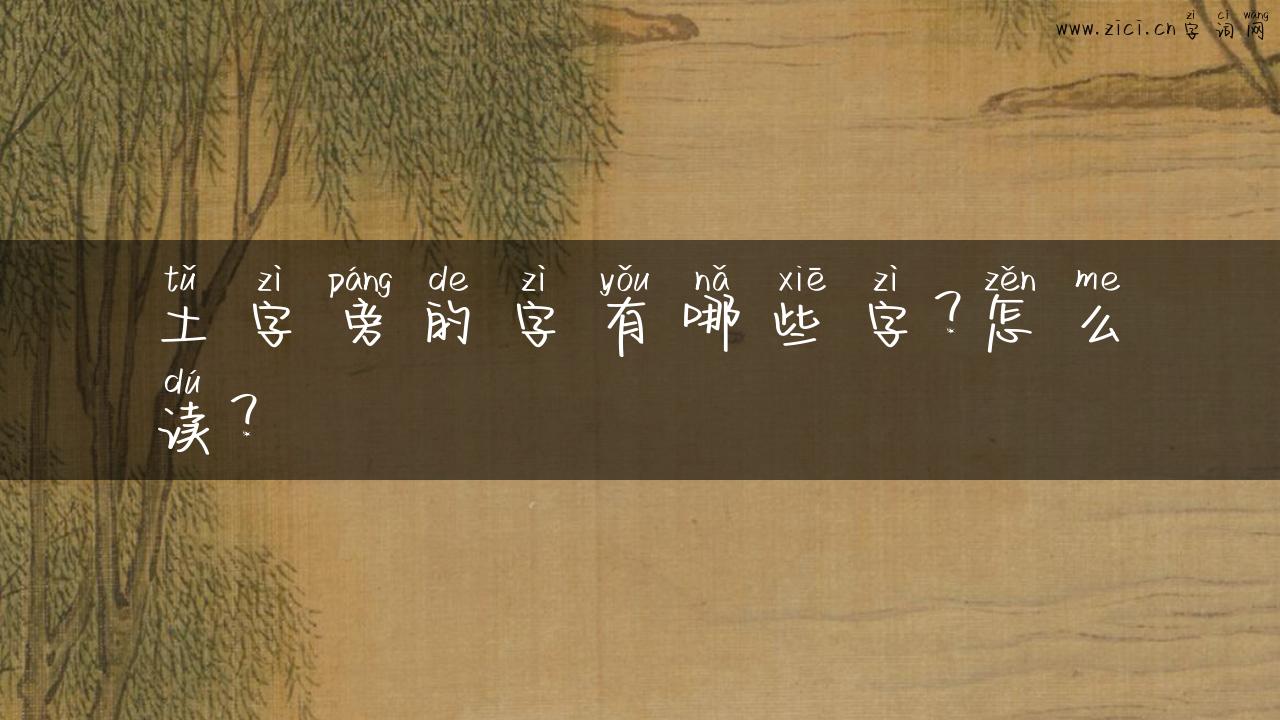 zì cí wǎng
www.zici.cn字词网
tǔ zì páng de zì yǒu nǎ xiē zì zěn me
土字旁的字有哪些字?怎么
dú
读?